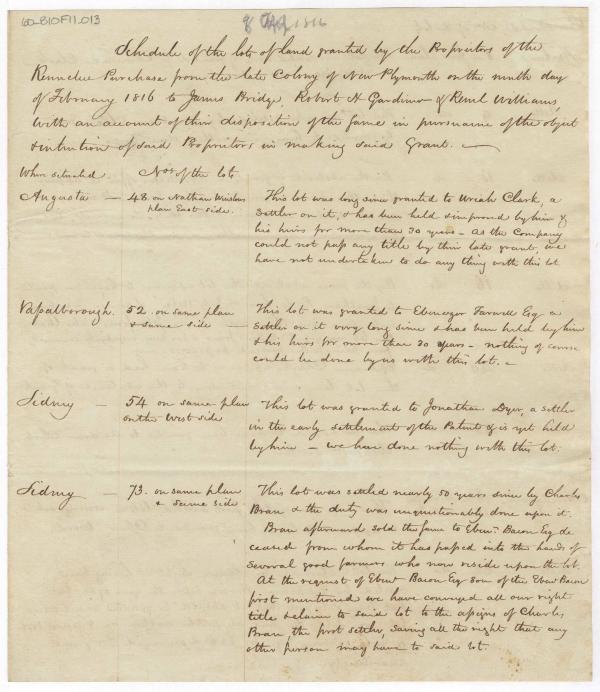 60-810F11.013
1816
Schedule of the lots of land granted by the Proprietors of the
Kennebec Purchase from the late Colony of New Plymouth on the ninth day
of February 1816 to James Bridge, Robert H Gardiner & Reuel Williams,
with an account of their disposition of the same in pursuance of the object
& intention of said Proprietors in making said Grant. —
Where situated. Nos of the lot
Augusta — 48. on Nathan Winslows This lot was long since granted to Uriah Clark, a
plan East side. settler on it, & has been held & improved by him &
his heirs for more than 30 years — as the Company
could not pass any title by their late grant, we
have not undertaken to do any thing with this lot
Vassalborough. 52. on same plan This lot was granted to Ebenezer Farwell Esq a
& same side — settler on it very long since & has been held by him
& his heirs for more than 30 years — nothing of course
could be done by us with this lot. —
Sidney — 54 on same plan This lot was granted to Jonathan Dyer, a settler
on the West side in the early settlement of the Patent & is yet held
by him — we have done nothing with this lot.
Sidney — 73. on same plan This lot was settled nearly 50 years since by Charles
& same side Bran & the duty was unquestionably done upon it.
Bran afterward sold the same to Ebenr. Bacon Esq de
ceased from whom it has passed into the hands of
several good farmers who now reside upon the lot.
At the request of Ebenr Bacon Esq son of the Ebenr Bacon
first mentioned we have conveyed all our right
title & claim to said lot to the assigns of Charles
Bran, the first settler, saving all the right that any
other person may have to said lot.